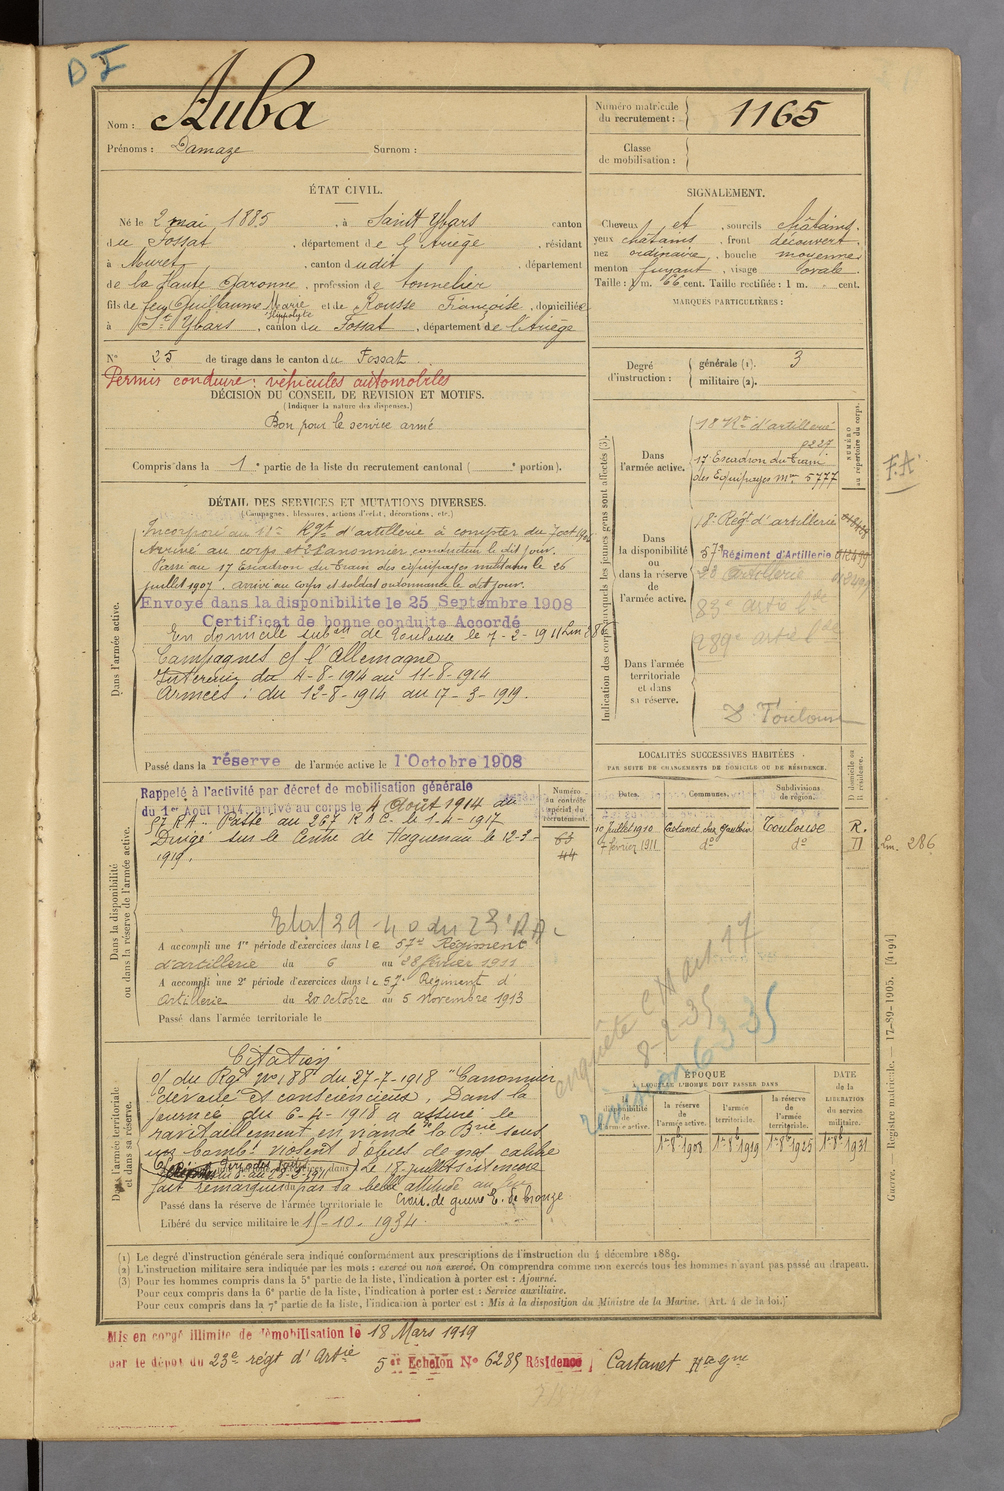 D I
Nom : Auba
Prénoms : Damaze Surnom :
Numéro matricule du recrutement : 1165
Classe de mobilisation :
ÉTAT CIVIL.
Né le 2 mai 1885, à Saint Ybars canton
du Fossat, département de l'Ariège, résidant
à Muret, canton dudit, département
de la Haute Garonne, profession de tonnelier
fils de feu Guillaume Marie Hippolyte et de Rousse Françoise, domiciliée
à St Ybars, canton du Fossat, département de l'Ariège
N° 25 de tirage dans le canton du Fossat.
Permis conduire : véhicules automobiles
SIGNALEMENT.
Cheveux et, sourcils châtains.
yeux châtains, front découvert.
nez ordinaire, bouche moyenne
menton fuyant, visage ovale.
Taille : 1 m. 66 cent. Taille rectifiée : 1 m. cent.
MARQUES PARTICULIÈRES :
DÉCISION DU CONSEIL DE REVISION ET MOTIFS.
(Indiquer la nature des dispenses.)
Bon pour le service armé
Compris dans la 1e partie de la liste du recrutement cantonal ( e portion).
Degré d'instruction : générale (1). 3
militaire (2).
DÉTAIL DES SERVICES ET MUTATIONS DIVERSES.
(Campagnes, blessures, actions d'éclat, décorations, etc.)
Dans l'armée active.
Rgt d'artillerie à compter du
Arrivé au corps et 2e canonnier conducteur le dit jour.
Passé au 17 Escadron du Train des équipages militaires le 26
juillet 1907. arrivé au corps et soldat ordonnance le dit jour.
Envoyé dans la disponibilité le 25 Septembre 1908
Certificat de bonne conduite Accordé
En domicile de Toulouse le 7-2-1911 Lm 286
Campagnes c/ l'Allemagne
Intérieur du 4-8-1914 au 11-8-1914
Armées : du 12-8-1914 au 17-3-1919.
Passé dans la réserve de l'armée active le 1 Octobre 1908
Indication des corps auxquels les jeunes gens sont affectés (3).
NUMÉRO au répertoire du corps.
Dans l'armée active.
18 Rt d'artillerie
2227
17 Escadron du Train
des Equipages mle 5777
F.A.
Dans la disponibilité ou dans la réserve de l'armée active.
18e Régt d'artillerie
57e Régiment d'Artillerie
23 Artillerie
83e artie lde
289e artie lde
Dans l'armée territoriale et dans sa réserve.
D. Toulouse
Dans la disponibilité ou dans la réserve de l'armée active.
Rappelé à l'activité par décret de mobilisation générale
du 1er Août 1914, arrivé au corps le 4 Août 1914 du
57 RA. Passé au 267 RAC. le 1-4-1917
Dirigé sur le Centre de Haguenau le 12-3-
1919.
Numéro au contrôle spécial du recrutement.
63
44
A accompli une 1re période d'exercices dans le 57e Régiment
d'artillerie du 6 au 28 février 1911
A accompli une 2e période d'exercices dans le 57e Régiment d'
Artillerie du 20 octobre au 5 novembre 1913
Passé dans l'armée territoriale le
LOCALITÉS SUCCESSIVES HABITÉES
PAR SUITE DE CHANGEMENTS DE DOMICILE OU DE RÉSIDENCE.
Dates. Communes. Subdivisions de région. D domicile ou R résidence.
10 juillet 1910 Castanet chez Gauthier Toulouse R.
7 février 1911 do do D
Lm. 286
enquête
8-2-35
révision 6-3-35
Dans l'armée territoriale et dans sa réserve.
Citation
o/ du Rgt N° 188 du 27-7-1918 "Canonnier
dévoué et consciencieux. Dans la
journée du 6-4-1918 a assuré le
ravitaillement en viande de la Brie sous
un bombt violent d'obus de gros calibre
Le 18 juillet s'est encore
fait remarquer par sa belle attitude au feu
Croix de guerre E. de bronze
Passé dans la réserve de l'armée territoriale le
Libéré du service militaire le 15-10-1934
ÉPOQUE
À LAQUELLE L'HOMME DOIT PASSER DANS
disponibilité de l'armée active. la réserve de l'armée active. l'armée territoriale. la réserve de l'armée territoriale. DATE de la LIBÉRATION du service militaire.
1er 8bre 1908 1er 8bre 1919 1er 8bre 1925 1er 8bre 1931
(1) Le degré d'instruction générale sera indiqué conformément aux prescriptions de l'instruction du 4 décembre 1889.
(2) L'instruction militaire sera indiquée par les mots : exercé ou non exercé. On comprendra comme non exercés tous les hommes n'ayant pas passé au drapeau.
(3) Pour les hommes compris dans la 5e partie de la liste, l'indication à porter est : Ajourné.
Pour ceux compris dans la 6e partie de la liste, l'indication à porter est : Service auxiliaire.
Pour ceux compris dans la 7e partie de la liste, l'indication à porter est : Mis à la disposition du Ministre de la Marine. (Art. 4 de la loi.)
Guerre. — Registre matricule. — 17-89-1905. [4194]
Mis en congé illimité de démobilisation le 18 Mars 1919
par le dépôt du 23e régt d'Artie 5e Echelon N° 6285 Résidence Castanet Hte Gne